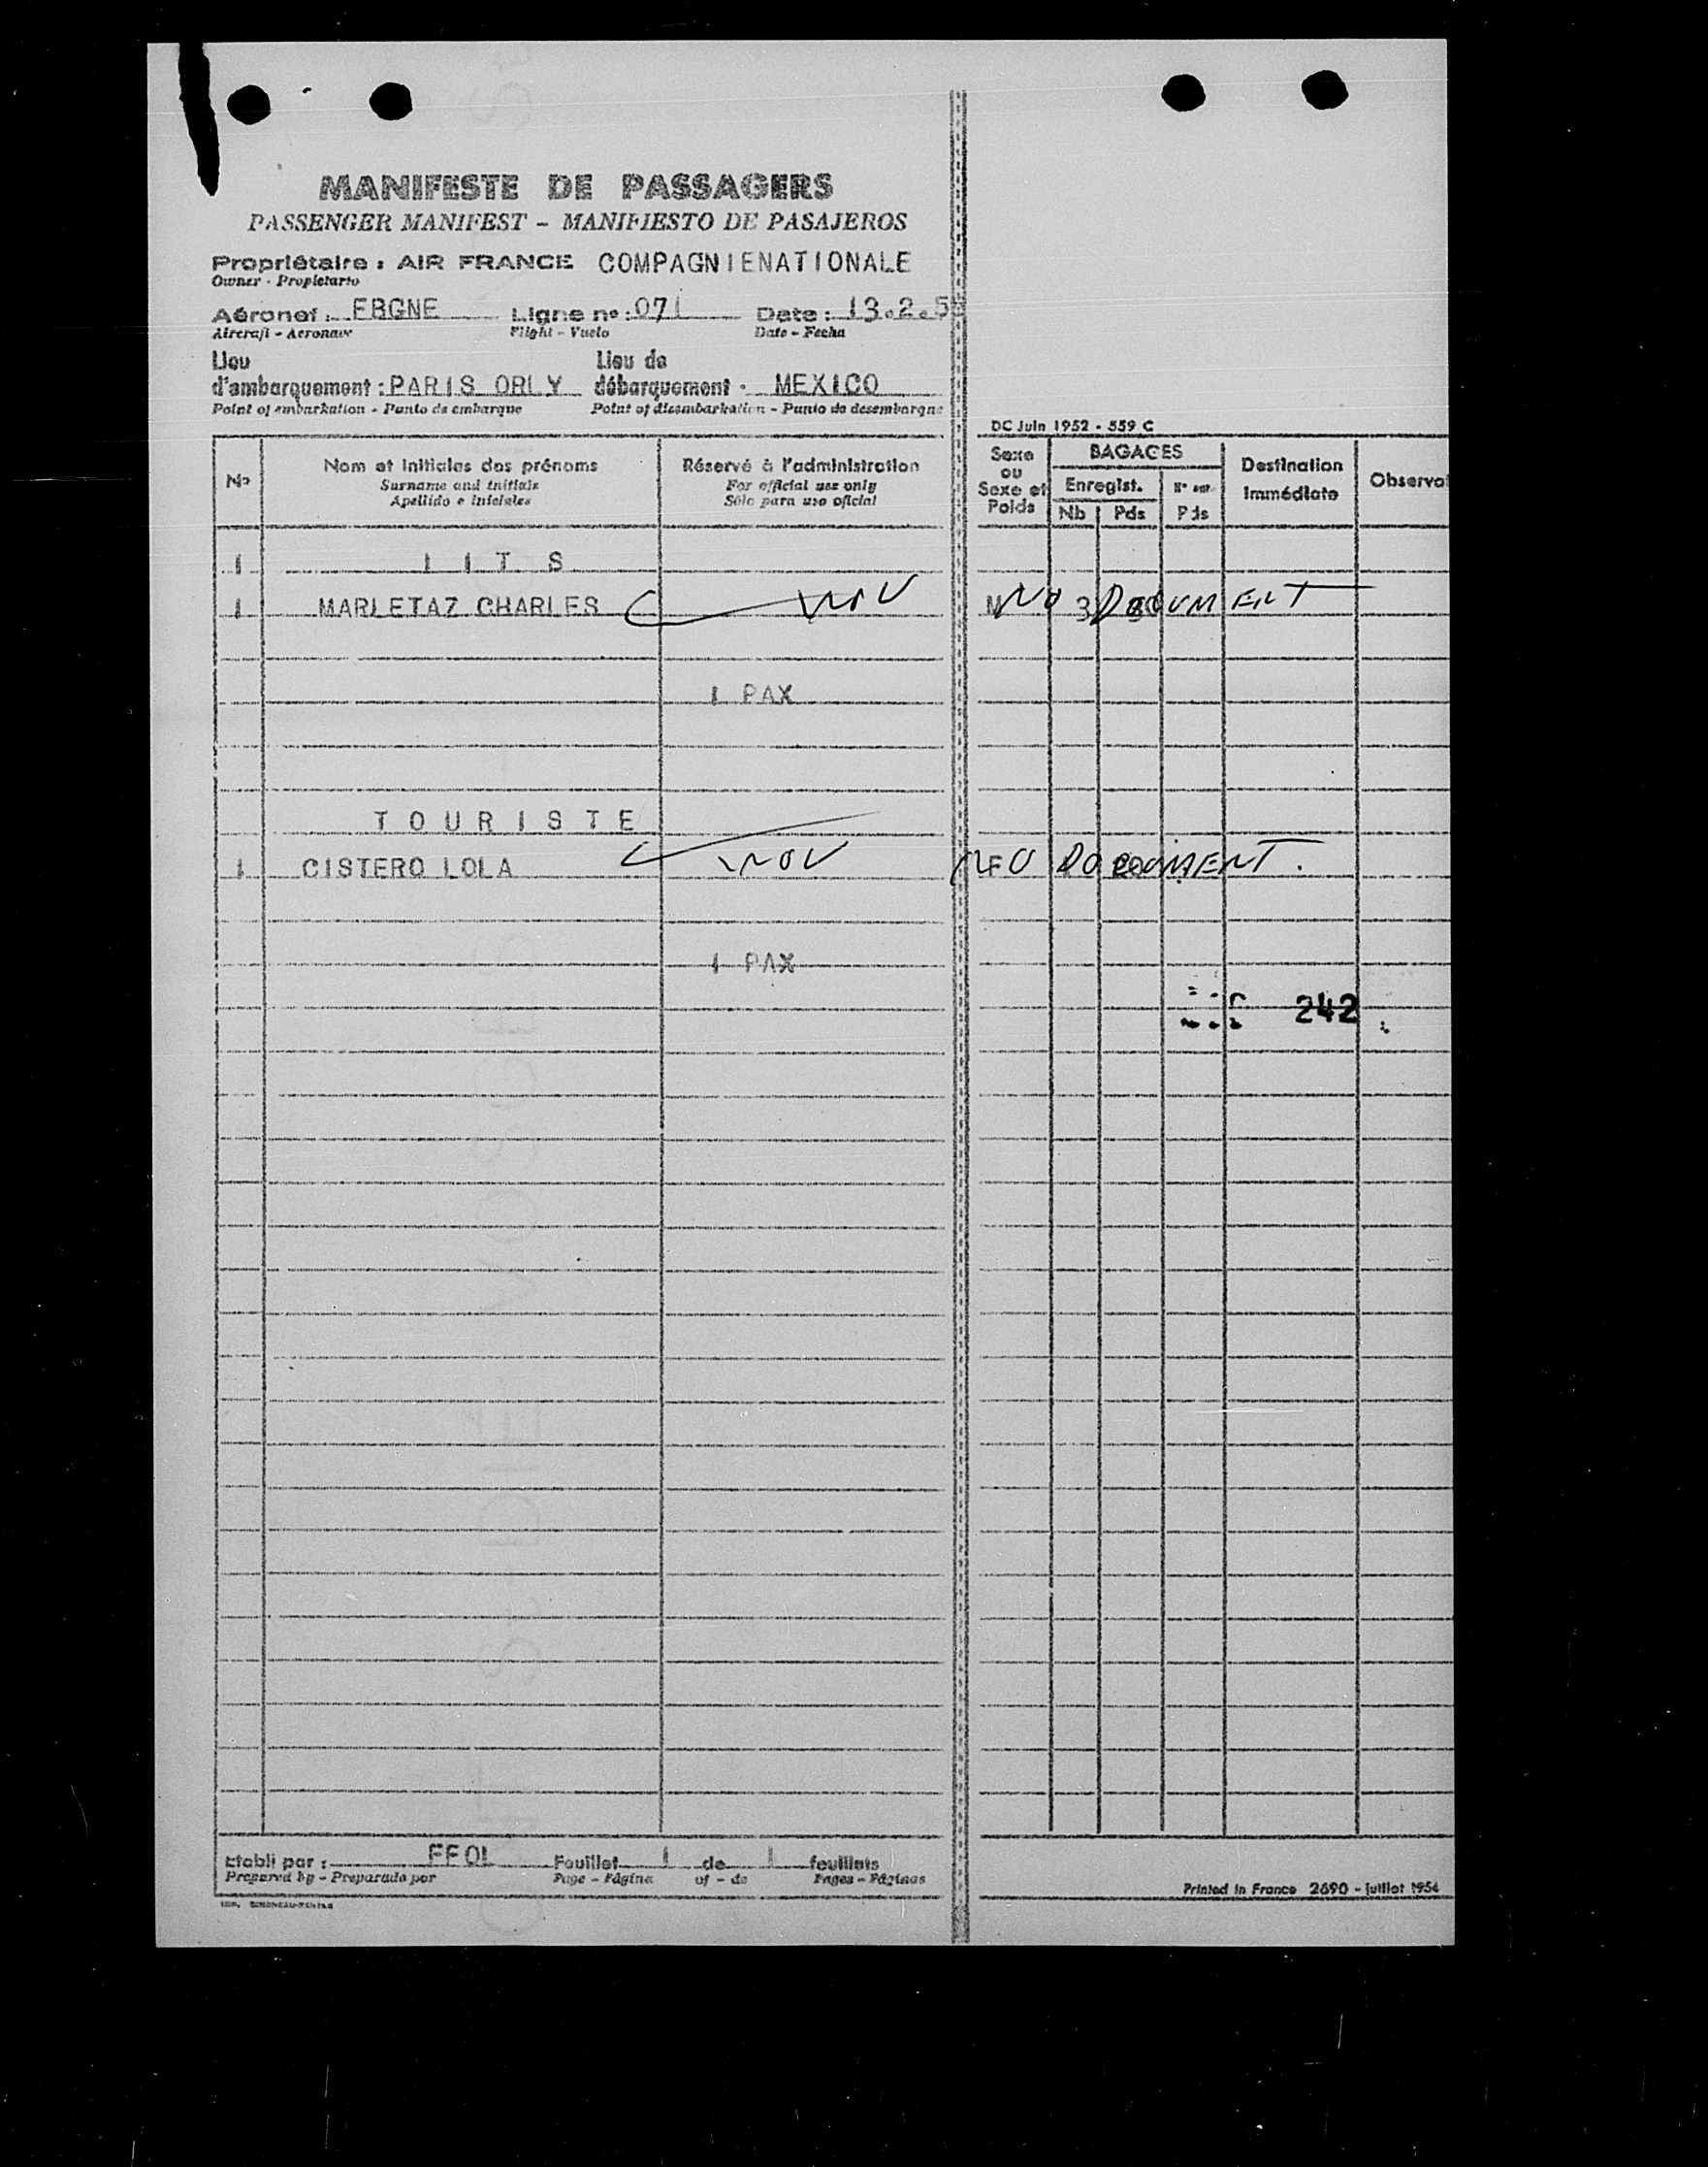 MANIFESTE DE PASSAGERS
PASSENGER MANIFEST - MANIFIESTO DE PASAJEROS
Propriétaire : AIR FRANCE COMPAGNIENATIONALE
Owner - Propietario
Aéronef : FBGNE Ligne no : 071 Date : 13.2.5
Aircraft - Aeronave Flight - Vuelo Date - Fecha
Lieu d'embarquement : PARIS ORLY Lieu de débarquement : MEXICO
Point of embarkation - Punto de embarque Point of disembarkation - Punto de desembarque
DC Juin 1952 - 559 C
No Nom et initiales des prénoms Réservé à l'administration Sexe ou Sexe et Poids BAGAGES Destination immédiate Observat
Surname and initials For official use only Enregist.
Apellido e iniciales Sólo para uso oficial Nb Pds Pds
1 L I T S
1 MARLETAZ CHARLES M NO 3 DOCUMENT
1 PAX
T O U R I S T E
1 CISTERO LOLA F NO DOCUMENT.
1 PAX
242
Etabli par : FFOL Feuillet 1 de 1 feuillets
Prepared by - Preparado por Page - Página of - de Pages - Páginas
Printed in France 2690 - juillet 1954